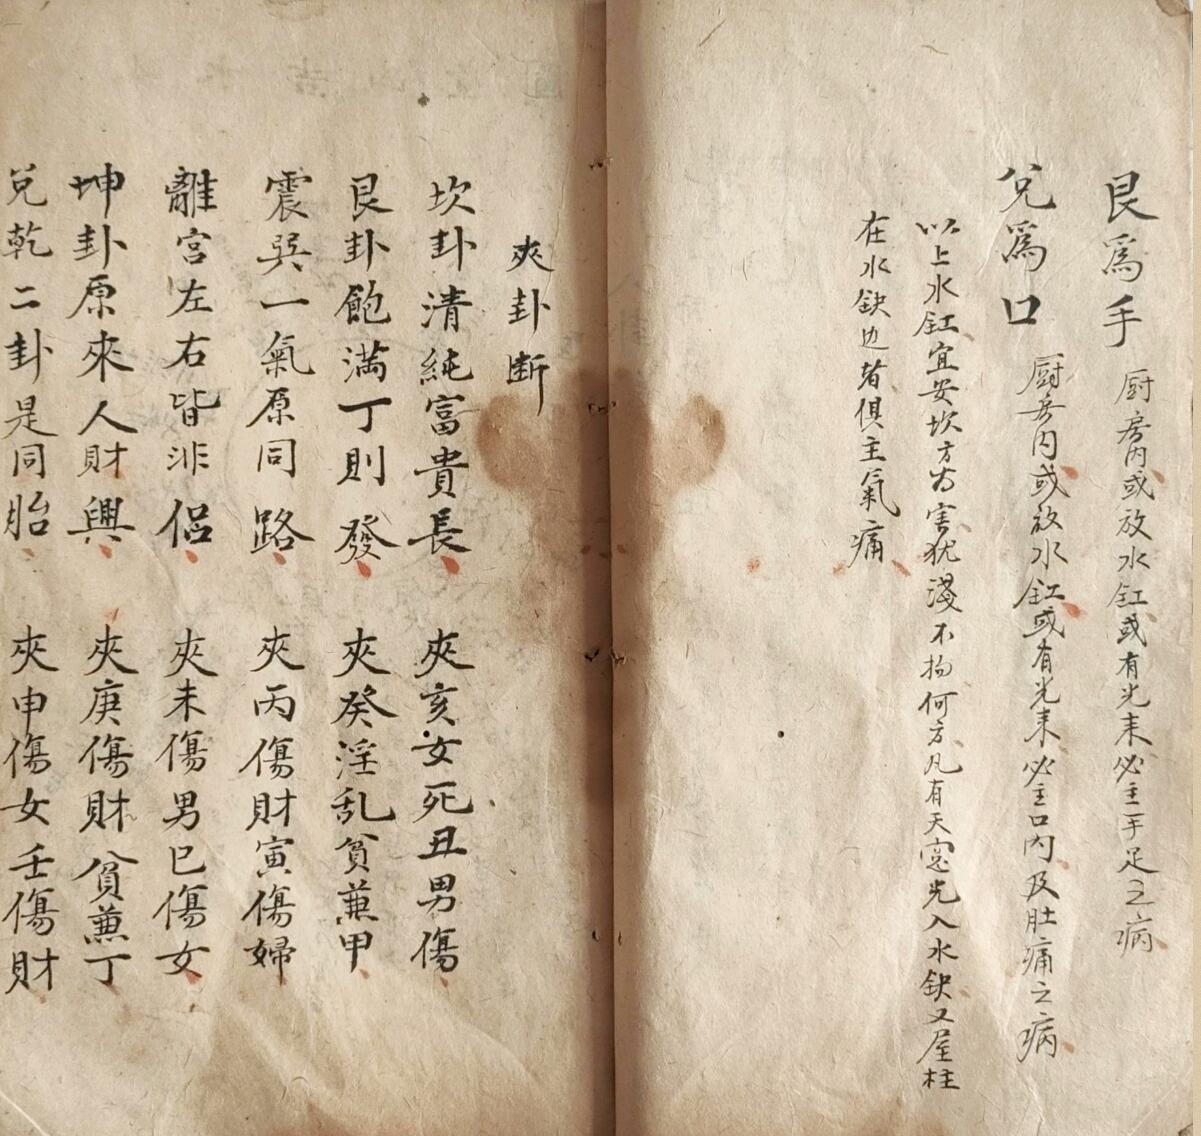 艮爲手 厨房内或放水缸或有光来必主手足之病
兑爲口 厨房内或放水缸或有光来必主口内及肚痛之病
以上水缸宜安坎方为害犹淺不拘何方凡有天窓光入水缺又屋柱
在水缺边者俱主氣痛
夾卦断
坎卦清純富貴長 夾亥女死丑男傷
艮卦飽満丁則發 夾癸淫乱貧兼甲
震巽一氣原同路 夾丙傷財寅傷婦
離宫左右皆非侣 夾未傷男巳傷女
坤卦原來人財興 夾庚傷財貧兼丁
兑乾二卦是同胎 夾申傷女壬傷財